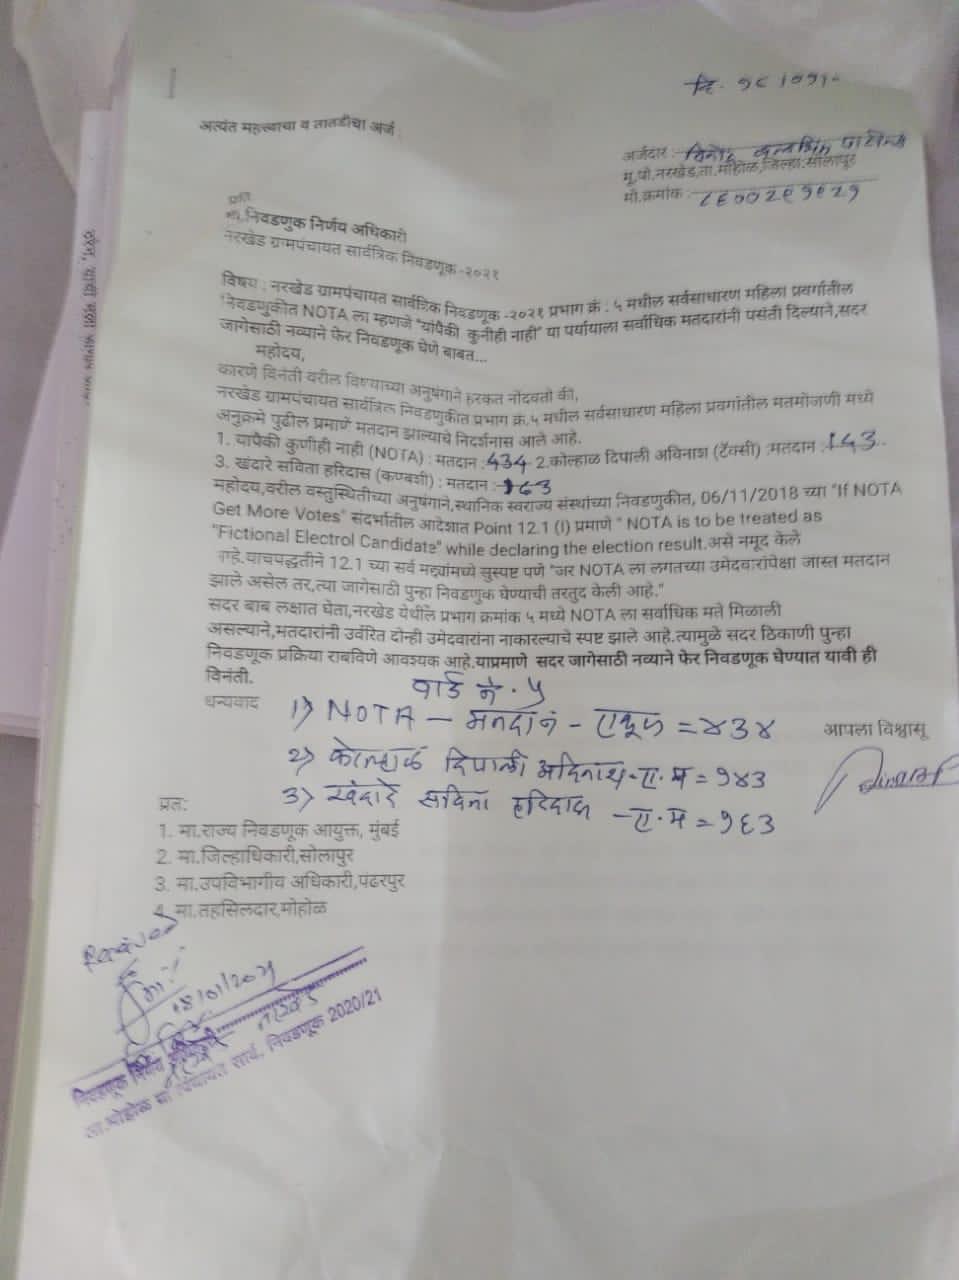 दि. १८।०१।
अत्यंत महत्त्वाचा व तातडीचा अर्ज
अर्जदार :- विनोद पाटील
मू.पो.नरखेड,ता.मोहोळ,जिल्हा:सोलापूर
मो.क्रमांक :-
प्रति,
मा.निवडणुक निर्णय अधिकारी
नरखेड ग्रामपंचायत सार्वत्रिक निवडणूक -२०२१
विषय : नरखेड ग्रामपंचायत सार्वत्रिक निवडणूक -२०२१ प्रभाग क्रं : ५ मधील सर्वसाधारण महिला प्रवर्गातील
निवडणुकीत NOTA ला म्हणजे "यांपैकी कुनीही नाही" या पर्यायाला सर्वाधिक मतदारांनी पसंती दिल्याने,सदर
जागेसाठी नव्याने फेर निवडणूक घेणे बाबत...
महोदय,
कारणे विनंती वरील विषयाच्या अनुषंगाने हरकत नोंदवतो की,
नरखेड ग्रामपंचायत सार्वत्रिक निवडणुकीत प्रभाग क्रं.५ मधील सर्वसाधारण महिला प्रवर्गातील मतमोजणी मध्ये
अनुक्रमे पुढील प्रमाणे मतदान झाल्याचे निदर्शनास आले आहे.
1. यापैकी कुणीही नाही (NOTA) : मतदान : 434 2.कोल्हाळ दिपाली अविनाश (टॅक्सी) :मतदान : 143..
3. खंदारे सविता हरिदास (कपबशी) : मतदान :- 163
महोदय,वरील वस्तुस्थितीच्या अनुषंगाने,स्थानिक स्वराज्य संस्थांच्या निवडणुकीत, 06/11/2018 च्या "If NOTA
Get More Votes" संदर्भातील आदेशात Point 12.1 (I) प्रमाणे " NOTA is to be treated as
"Fictional Electrol Candidate" while declaring the election result.असे नमूद केले
आहे.याचपद्धतीने 12.1 च्या सर्व मद्द्यांमध्ये सुस्पष्ट पणे "जर NOTA ला लगतच्या उमेदवारांपेक्षा जास्त मतदान
झाले असेल तर,त्या जागेसाठी पुन्हा निवडणुक घेण्याची तरतुद केली आहे."
सदर बाब लक्षात घेता,नरखेड येथील प्रभाग क्रमांक ५ मध्ये NOTA ला सर्वाधिक मते मिळाली
असल्याने,मतदारांनी उर्वरित दोन्ही उमेदवारांना नाकारल्याचे स्पष्ट झाले आहे.त्यामुळे सदर ठिकाणी पुन्हा
निवडणूक प्रक्रिया राबविणे आवश्यक आहे.याप्रमाणे सदर जागेसाठी नव्याने फेर निवडणूक घेण्यात यावी ही
विनंती.
वार्ड नं. ५
धन्यवाद
1) NOTA – मतदान – एकूण = ४३४
आपला विश्वासू
२) कोल्हाळ दिपाली अविनाश-ए.म = १४३
3) खंदारे सविता हरिदास – ए.म = १६३
प्रत:
1. मा.राज्य निवडणूक आयुक्त, मुंबई
2. मा.जिल्हाधिकारी,सोलापुर
3. मा.उपविभागीय अधिकारी,पंढरपुर
4. मा.तहसिलदार,मोहोळ
Received
18/01/2021
निवडणूक निर्णय अधिकारी
ता.मोहोळ ग्रा पंचायत सार्व. निवडणूक 2020/21